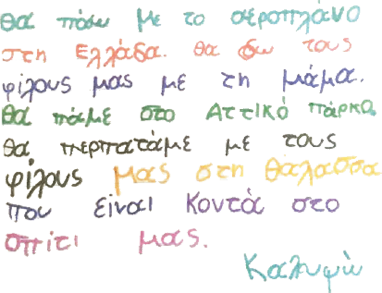 θα πάω με το αεροπλάνο
στη Ελλάδα. θα δω τους
φίλους μας με τη μάμα.
θα πάμε στο Αττικό πάρκο.
θα περπατάμε με τους
φίλους μας στη θαλασσα
που είναι κοντά στο
σπίτι μας.
Καλυψώ